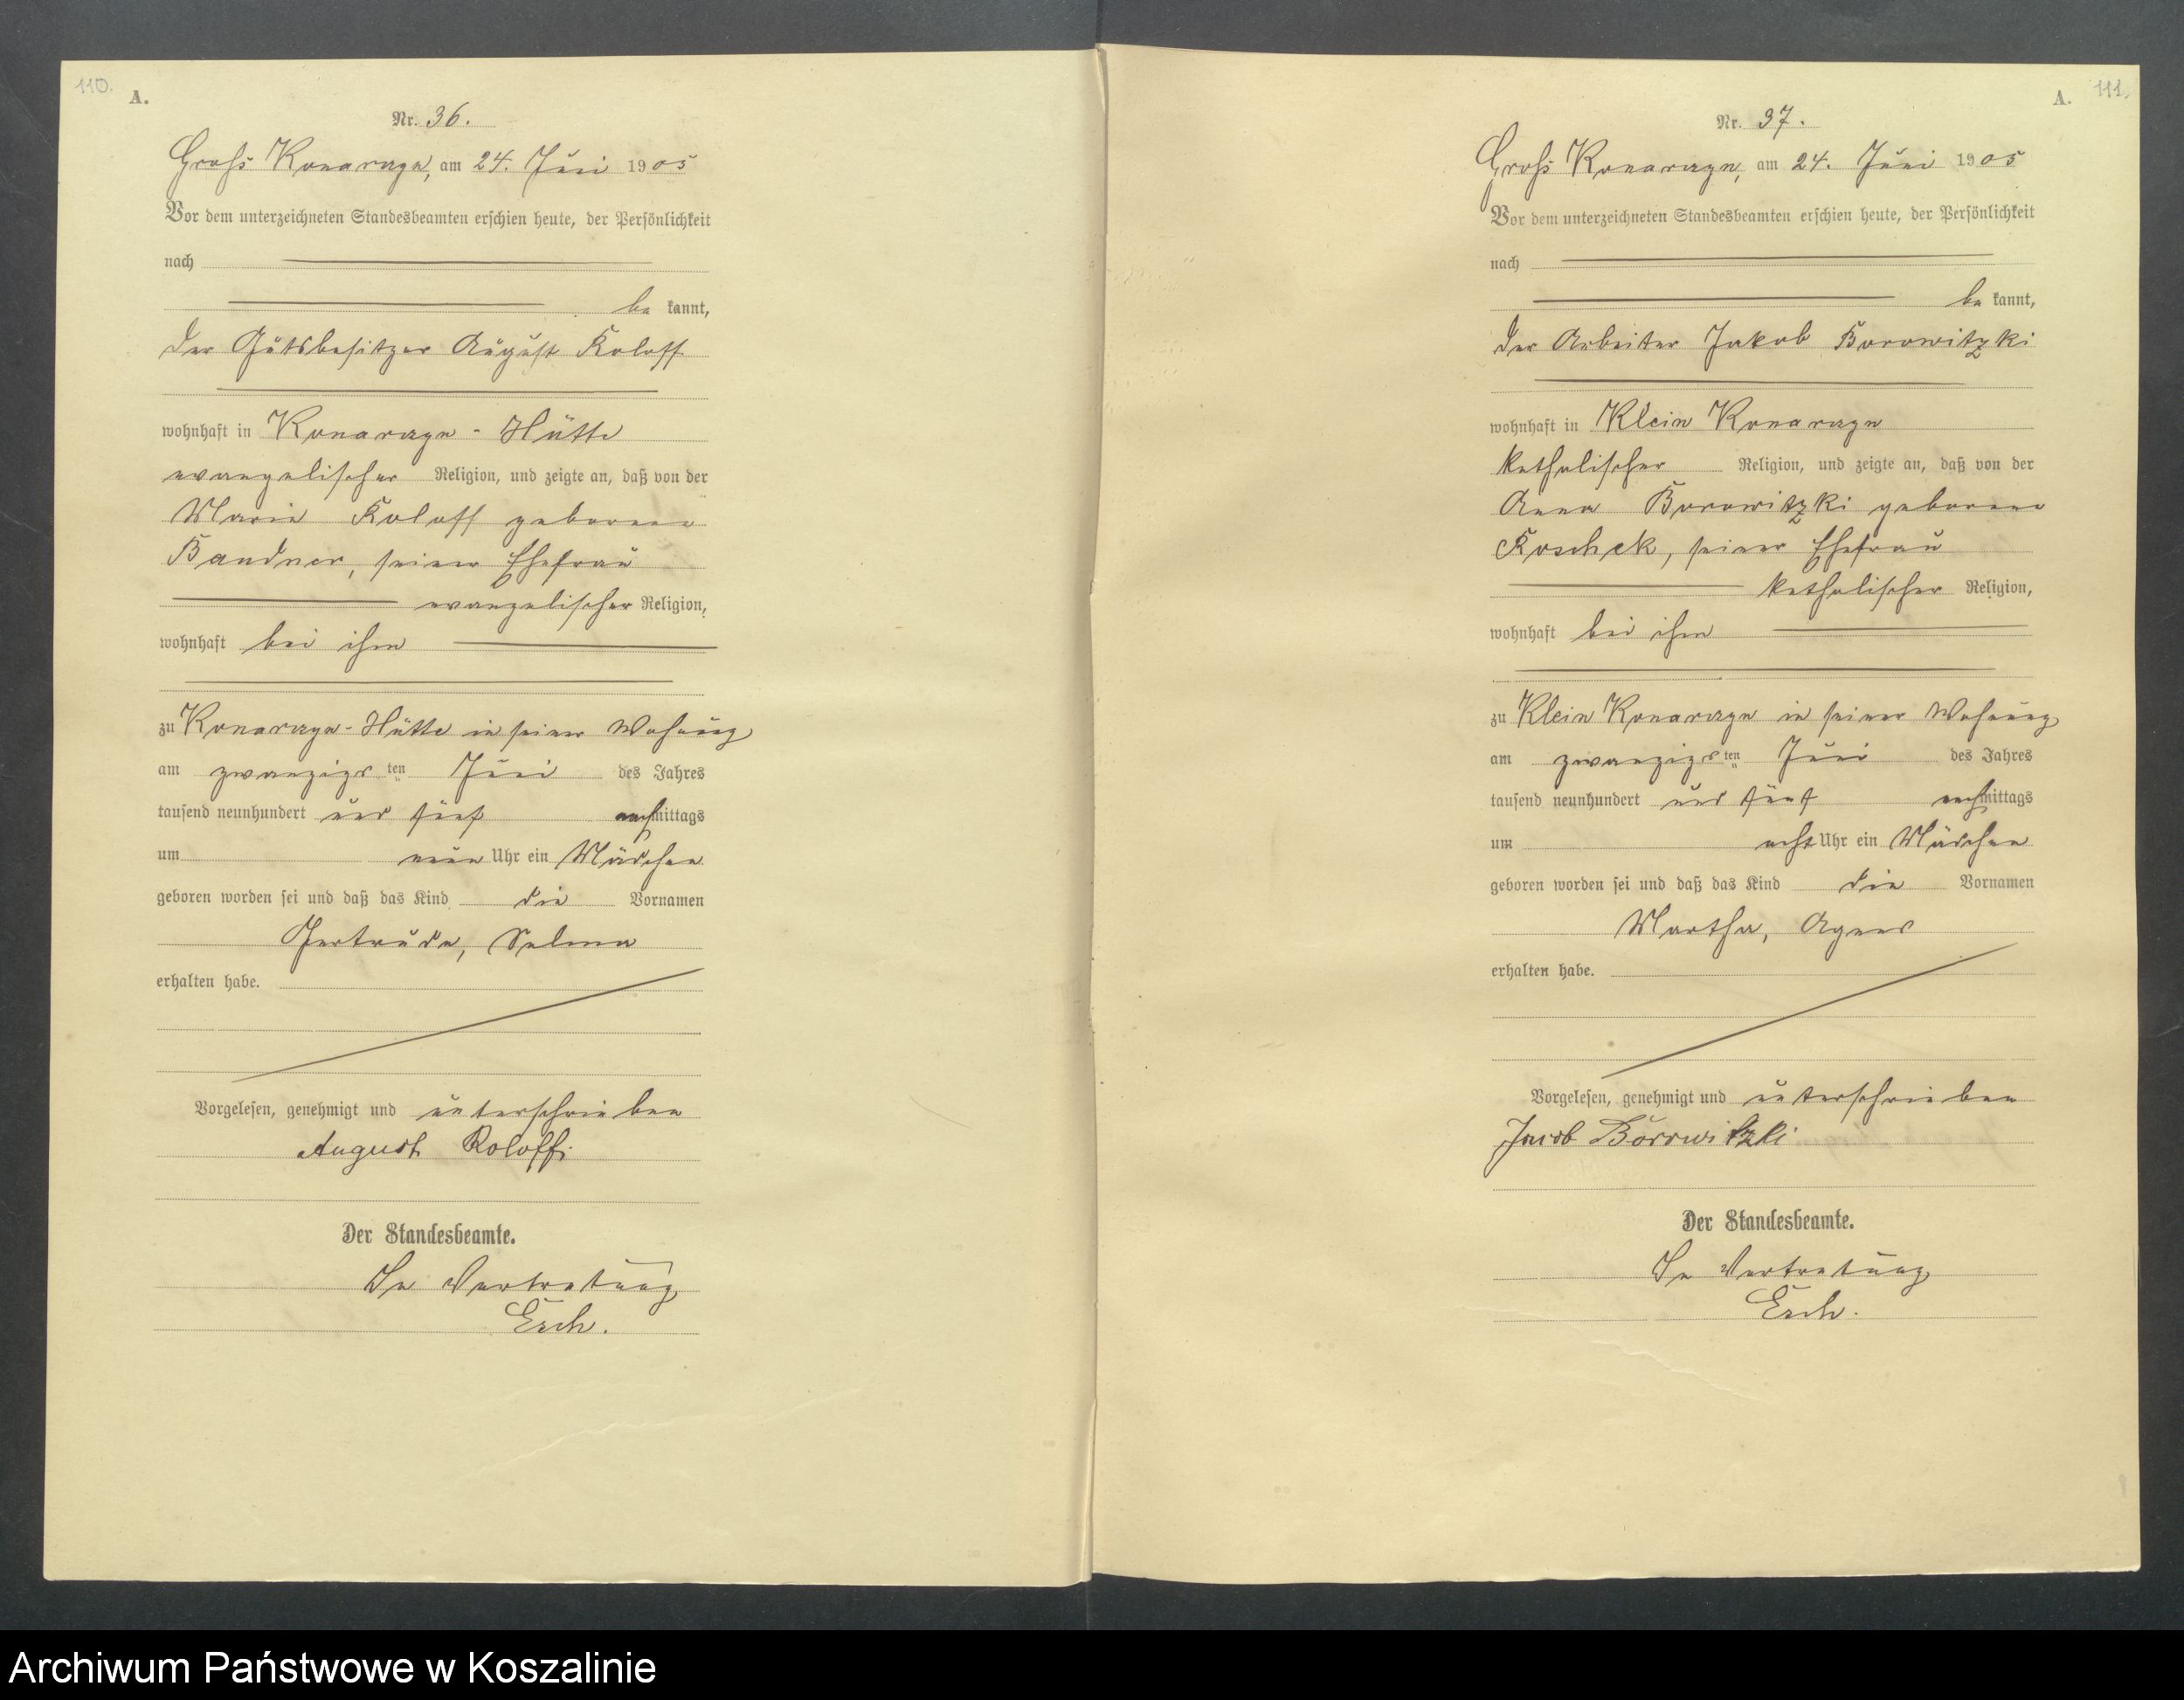 110.
A.
Nr. 36.
Groß Konarczyn, am 24. Juni 1905
Vor dem unterzeichneten Standesbeamten erschien heute, der Persönlichkeit
nach
be kannt,
der Gutsbesitzer August Roloff
wohnhaft in Konarczyn - Hütte
evangelischer Religion, und zeigte an, daß von der
Marie Roloff geborene
Bandner, seiner Ehefrau
evangelischer Religion,
wohnhaft bei ihm
zu Konarczyn - Hütte in seiner Wohnung
am zwanzigsten Juni des Jahres
tausend neunhundert und fünf nachmittags
um neun Uhr ein Mädchen
geboren worden sei und daß das Kind die Vornamen
Gertrude, Selma
erhalten habe.
Vorgelesen, genehmigt und unterschrieben
August Roloff.
Der Standesbeamte.
In Vertretung
Esch.
111.
A.
Nr. 37.
Groß Konarczyn, am 24. Juni 1905
Vor dem unterzeichneten Standesbeamten erschien heute, der Persönlichkeit
nach
be kannt,
der Arbeiter Jakob Borowitzki
wohnhaft in Klein Konarczyn
katholischer Religion, und zeigte an, daß von der
Anna Borowitzki geborene
Roschek, seiner Ehefrau
katholischer Religion,
wohnhaft bei ihm
zu Klein Konarczyn in seiner Wohnung
am zwanzigsten Juni des Jahres
tausend neunhundert und fünf nachmittags
um acht Uhr ein Mädchen
geboren worden sei und daß das Kind die Vornamen
Martha, Agnes
erhalten habe.
Vorgelesen, genehmigt und unterschrieben
Jacob Borrwitzki
Der Standesbeamte.
In Vertretung
Esch.
Archiwum Państwowe w Koszalinie